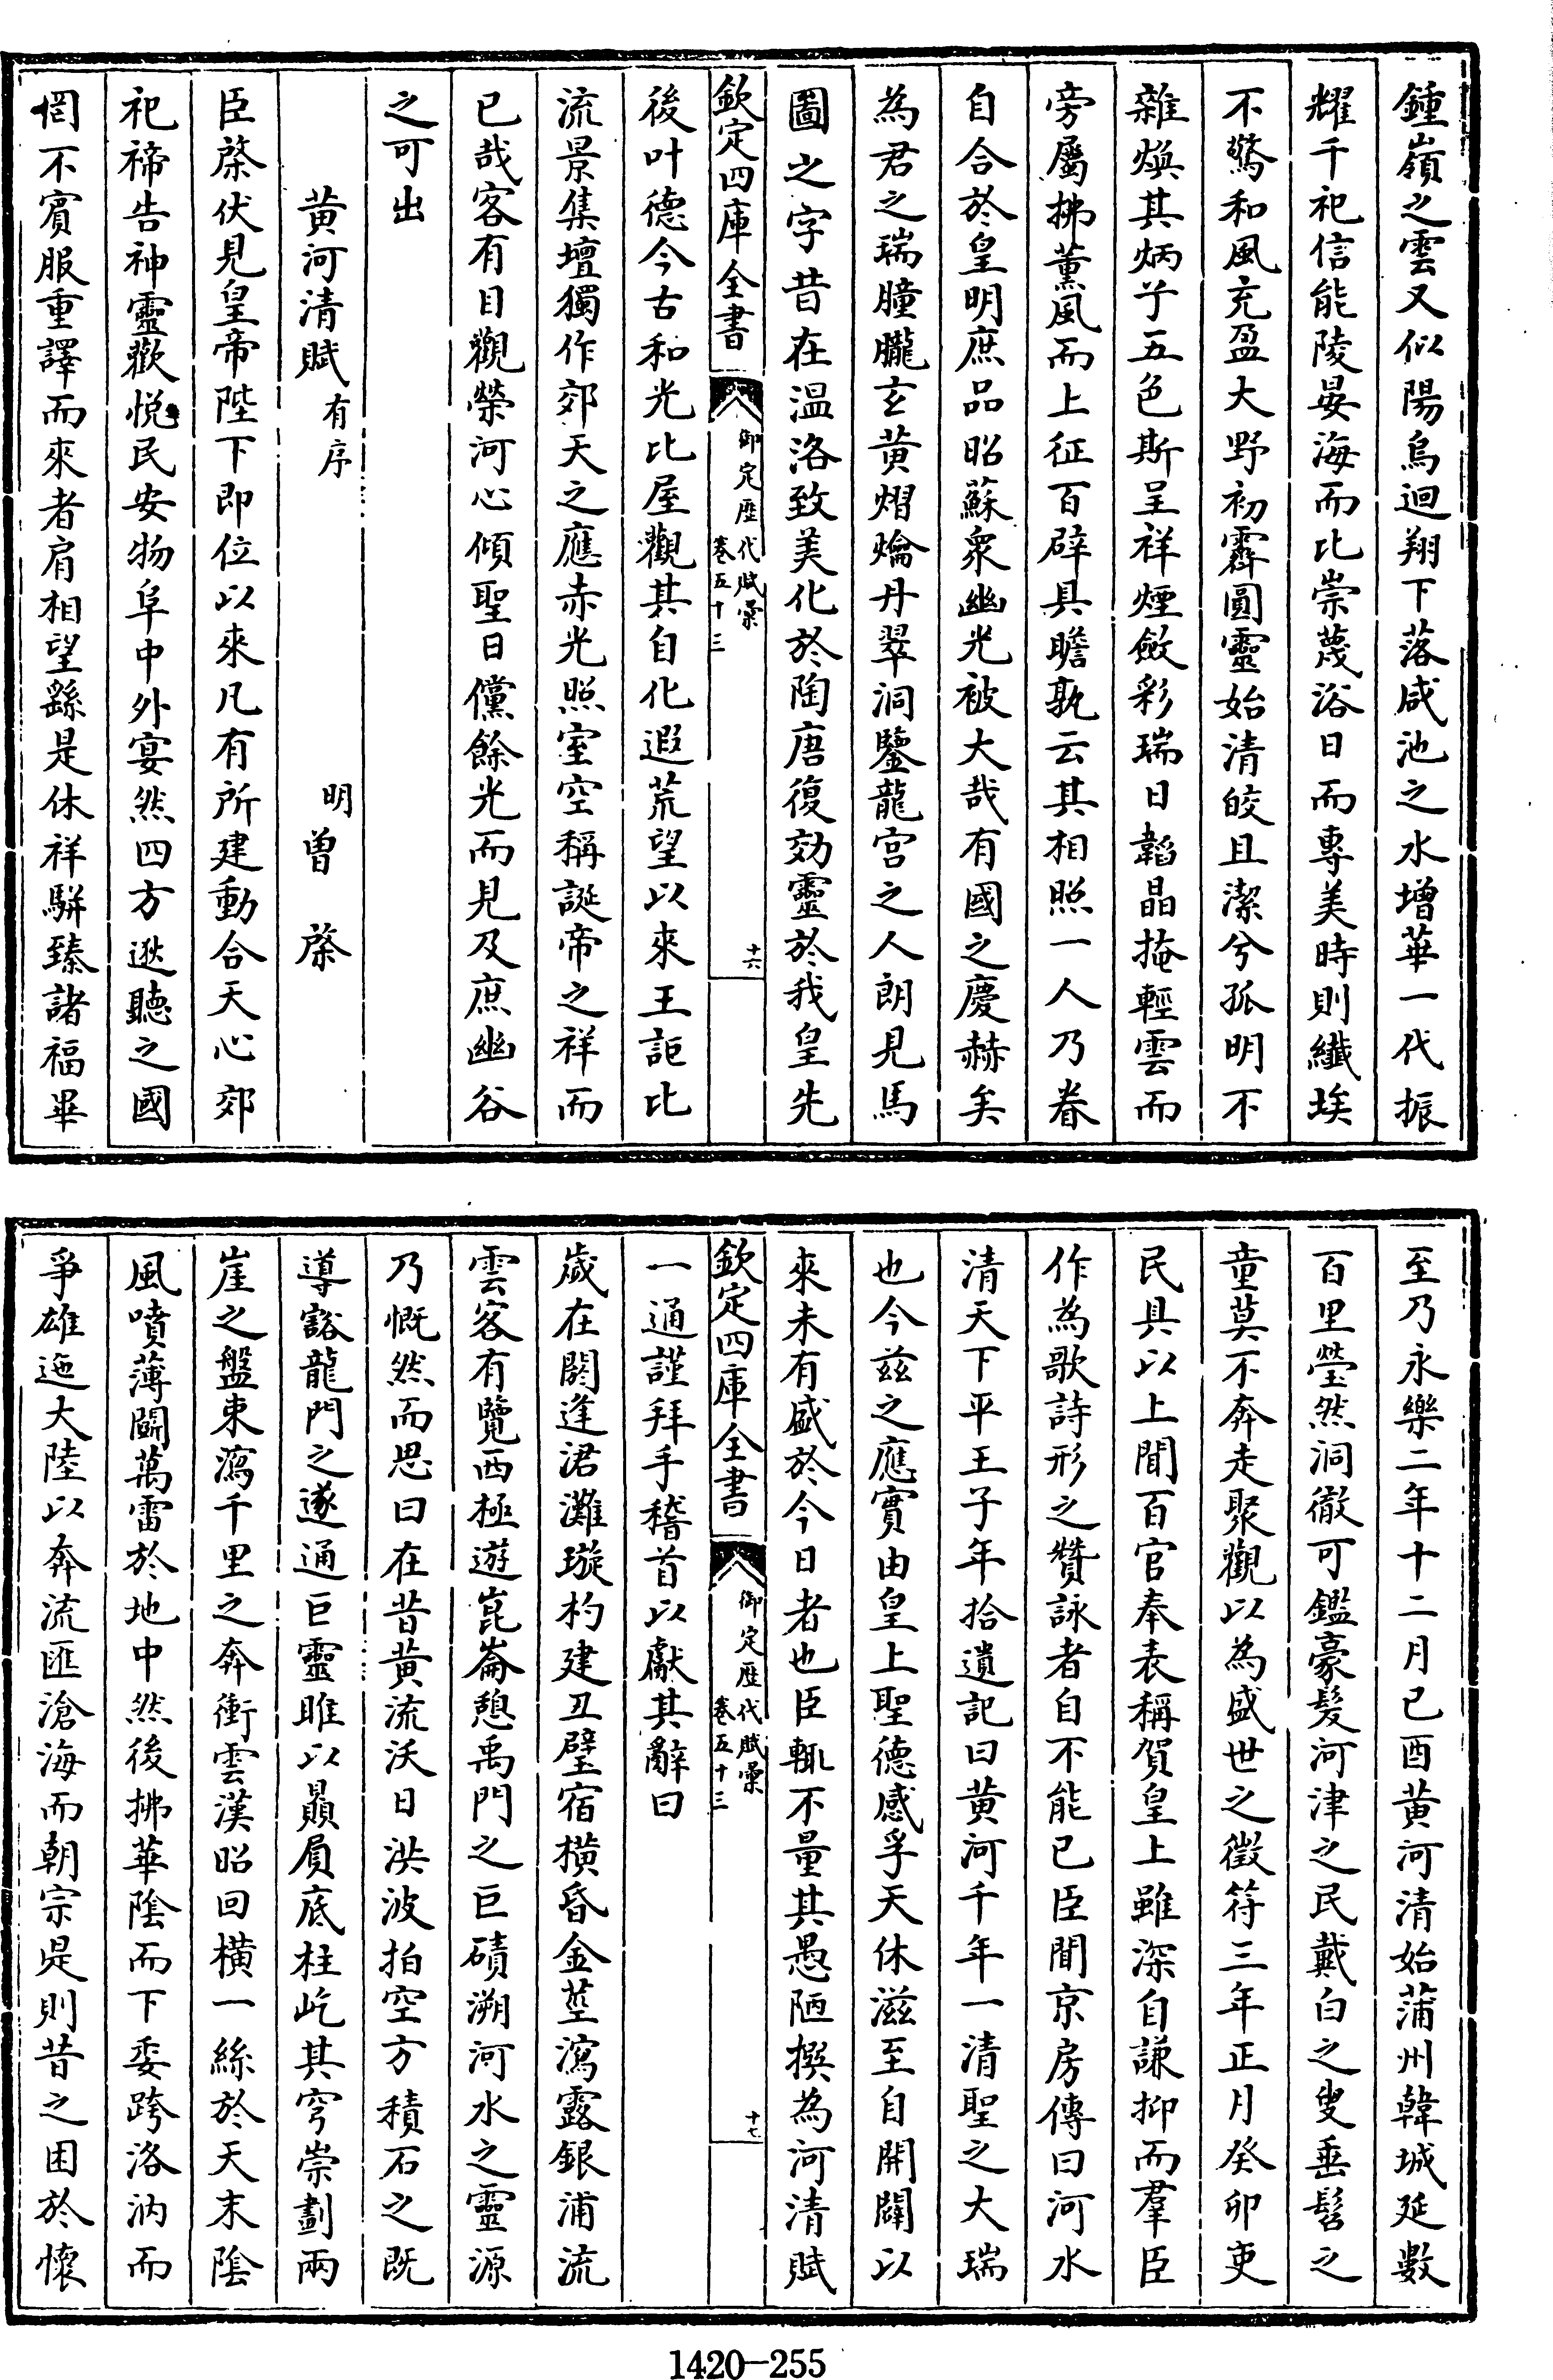 鍾嶺之雲又似陽烏迴翔下落咸池之水增華一代振
耀千祀信能陵晏海而比崇蔑浴日而專美時則纖埃
不驚和風充盈大野初霽圓靈始清皎且潔兮孤明不
雜煥其炳兮五色斯呈祥煙斂彩瑞日韜晶掩輕雲而
旁屬拂薰風而上征百辟具瞻孰云其相照一人乃眷
自合於皇明庶品昭蘇衆幽光被大哉有國之慶赫矣
為君之瑞瞳朧玄黄熠爚丹翠洞鑒龍宫之人朗見馬
圖之字昔在温洛致美化於陶唐復効靈於我皇先
欽定四庫全書
御定歷代賦彙
卷五十三
十六
後叶德今古和光比屋觀其自化遐荒望以來王詎比
流景集壇獨作郊天之應赤光照室空稱誕帝之祥而
已哉客有目觀榮河心傾聖日儻餘光而見及庶幽谷
之可出
黄河清賦有序 明曽棨
臣棨伏見皇帝陛下即位以來凡有所建動合天心郊
祀禘告神靈歡悦民安物阜中外宴然四方逖聽之國
罔不賓服重譯而來者肩相望繇是休祥駢臻諸福畢
至乃永樂二年十二月已酉黄河清始蒲州韓城延數
百里瑩然洞徹可鑑豪髮河津之民戴白之叟垂髫之
童莫不奔走聚觀以為盛世之徵符三年正月癸卯吏
民具以上聞百官奉表稱賀皇上雖深自謙抑而羣臣
作為歌詩形之贊詠者自不能已臣聞京房傳曰河水
清天下平王子年拾遺記曰黄河千年一清聖之大瑞
也今兹之應實由皇上聖德感孚天休滋至自開闢以
來未有盛於今日者也臣輒不量其愚陋撰為河清賦
欽定四庫全書
御定歷代賦彙
卷五十三
十七
一通謹拜手稽首以獻其辭曰
歲在閼逢涒灘璇杓建丑壁宿橫昏金莖瀉露銀浦流
雲客有覽西極遊崑崙憩禹門之巨磧溯河水之靈源
乃慨然而思曰在昔黄流沃日洪波拍空方積石之既
導豁龍門之遂通巨靈雎以贔屓底柱屹其穹崇劃兩
崖之盤束瀉千里之奔衝雲漢昭回橫一絲於天末陰
風噴薄闢萬雷於地中然後拂華陰而下委跨洛汭而
爭雄迤大陸以奔流匯滄海而朝宗是則昔之困於懷
1420-255